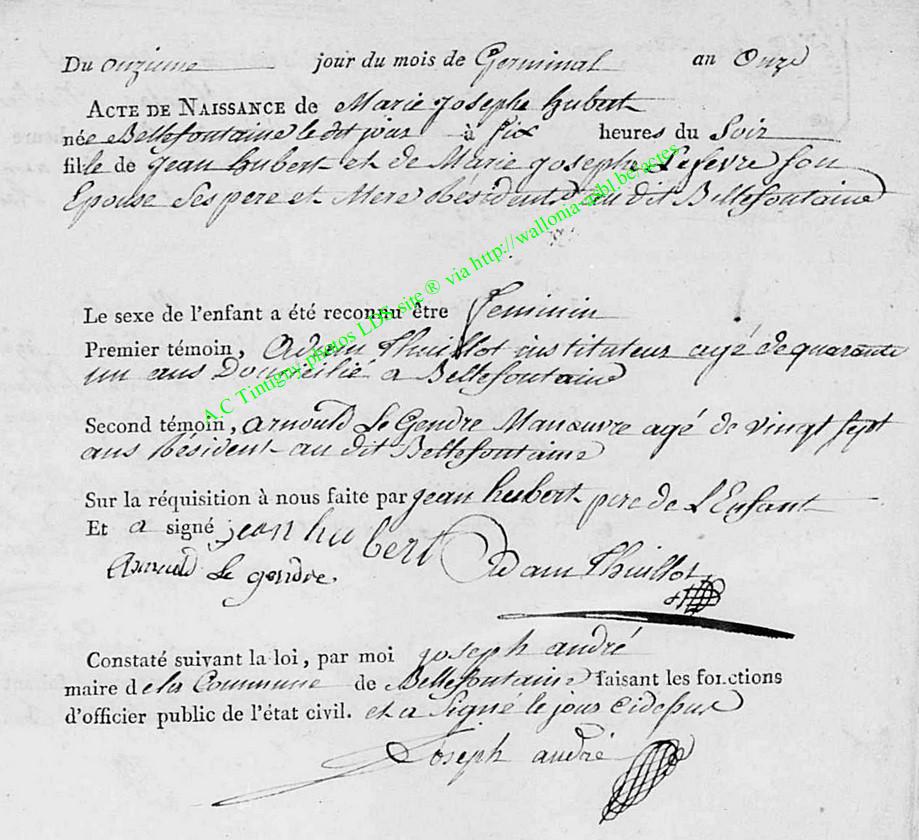 Du onzieme jour du mois de Germinal an Onze
ACTE DE NAISSANCE de Marie josephe hubert
née Bellefontaine le dit jour à six heures du Soir
fille de jean hubert et de Marie josephe Lefevre son
Epouse Ses pere et Mere Résidents au dit Bellefontaine
Le sexe de l'enfant a été reconnu être feminin
Premier témoin, Adam Thuillot instituteur agé de quarante
un ans Domicilié a Bellefontaine
Second témoin, arnould Le Gendre Manœuvre agé de vingt sept
ans Résident au dit Bellefontaine
Sur la réquisition à nous faite par jean hubert pere de L'Enfant
Et a signé jean hubert
Arnould Le gendre. Adam Thuillot
Constaté suivant la loi, par moi joseph andré
maire de la Commune de Bellefontaine faisant les fonctions
d'officier public de l'état civil. et a Signé le jour cidessus
Joseph andré
A.C Tintigny photos LDS site ® via http://wallonia-asbl.be/actes